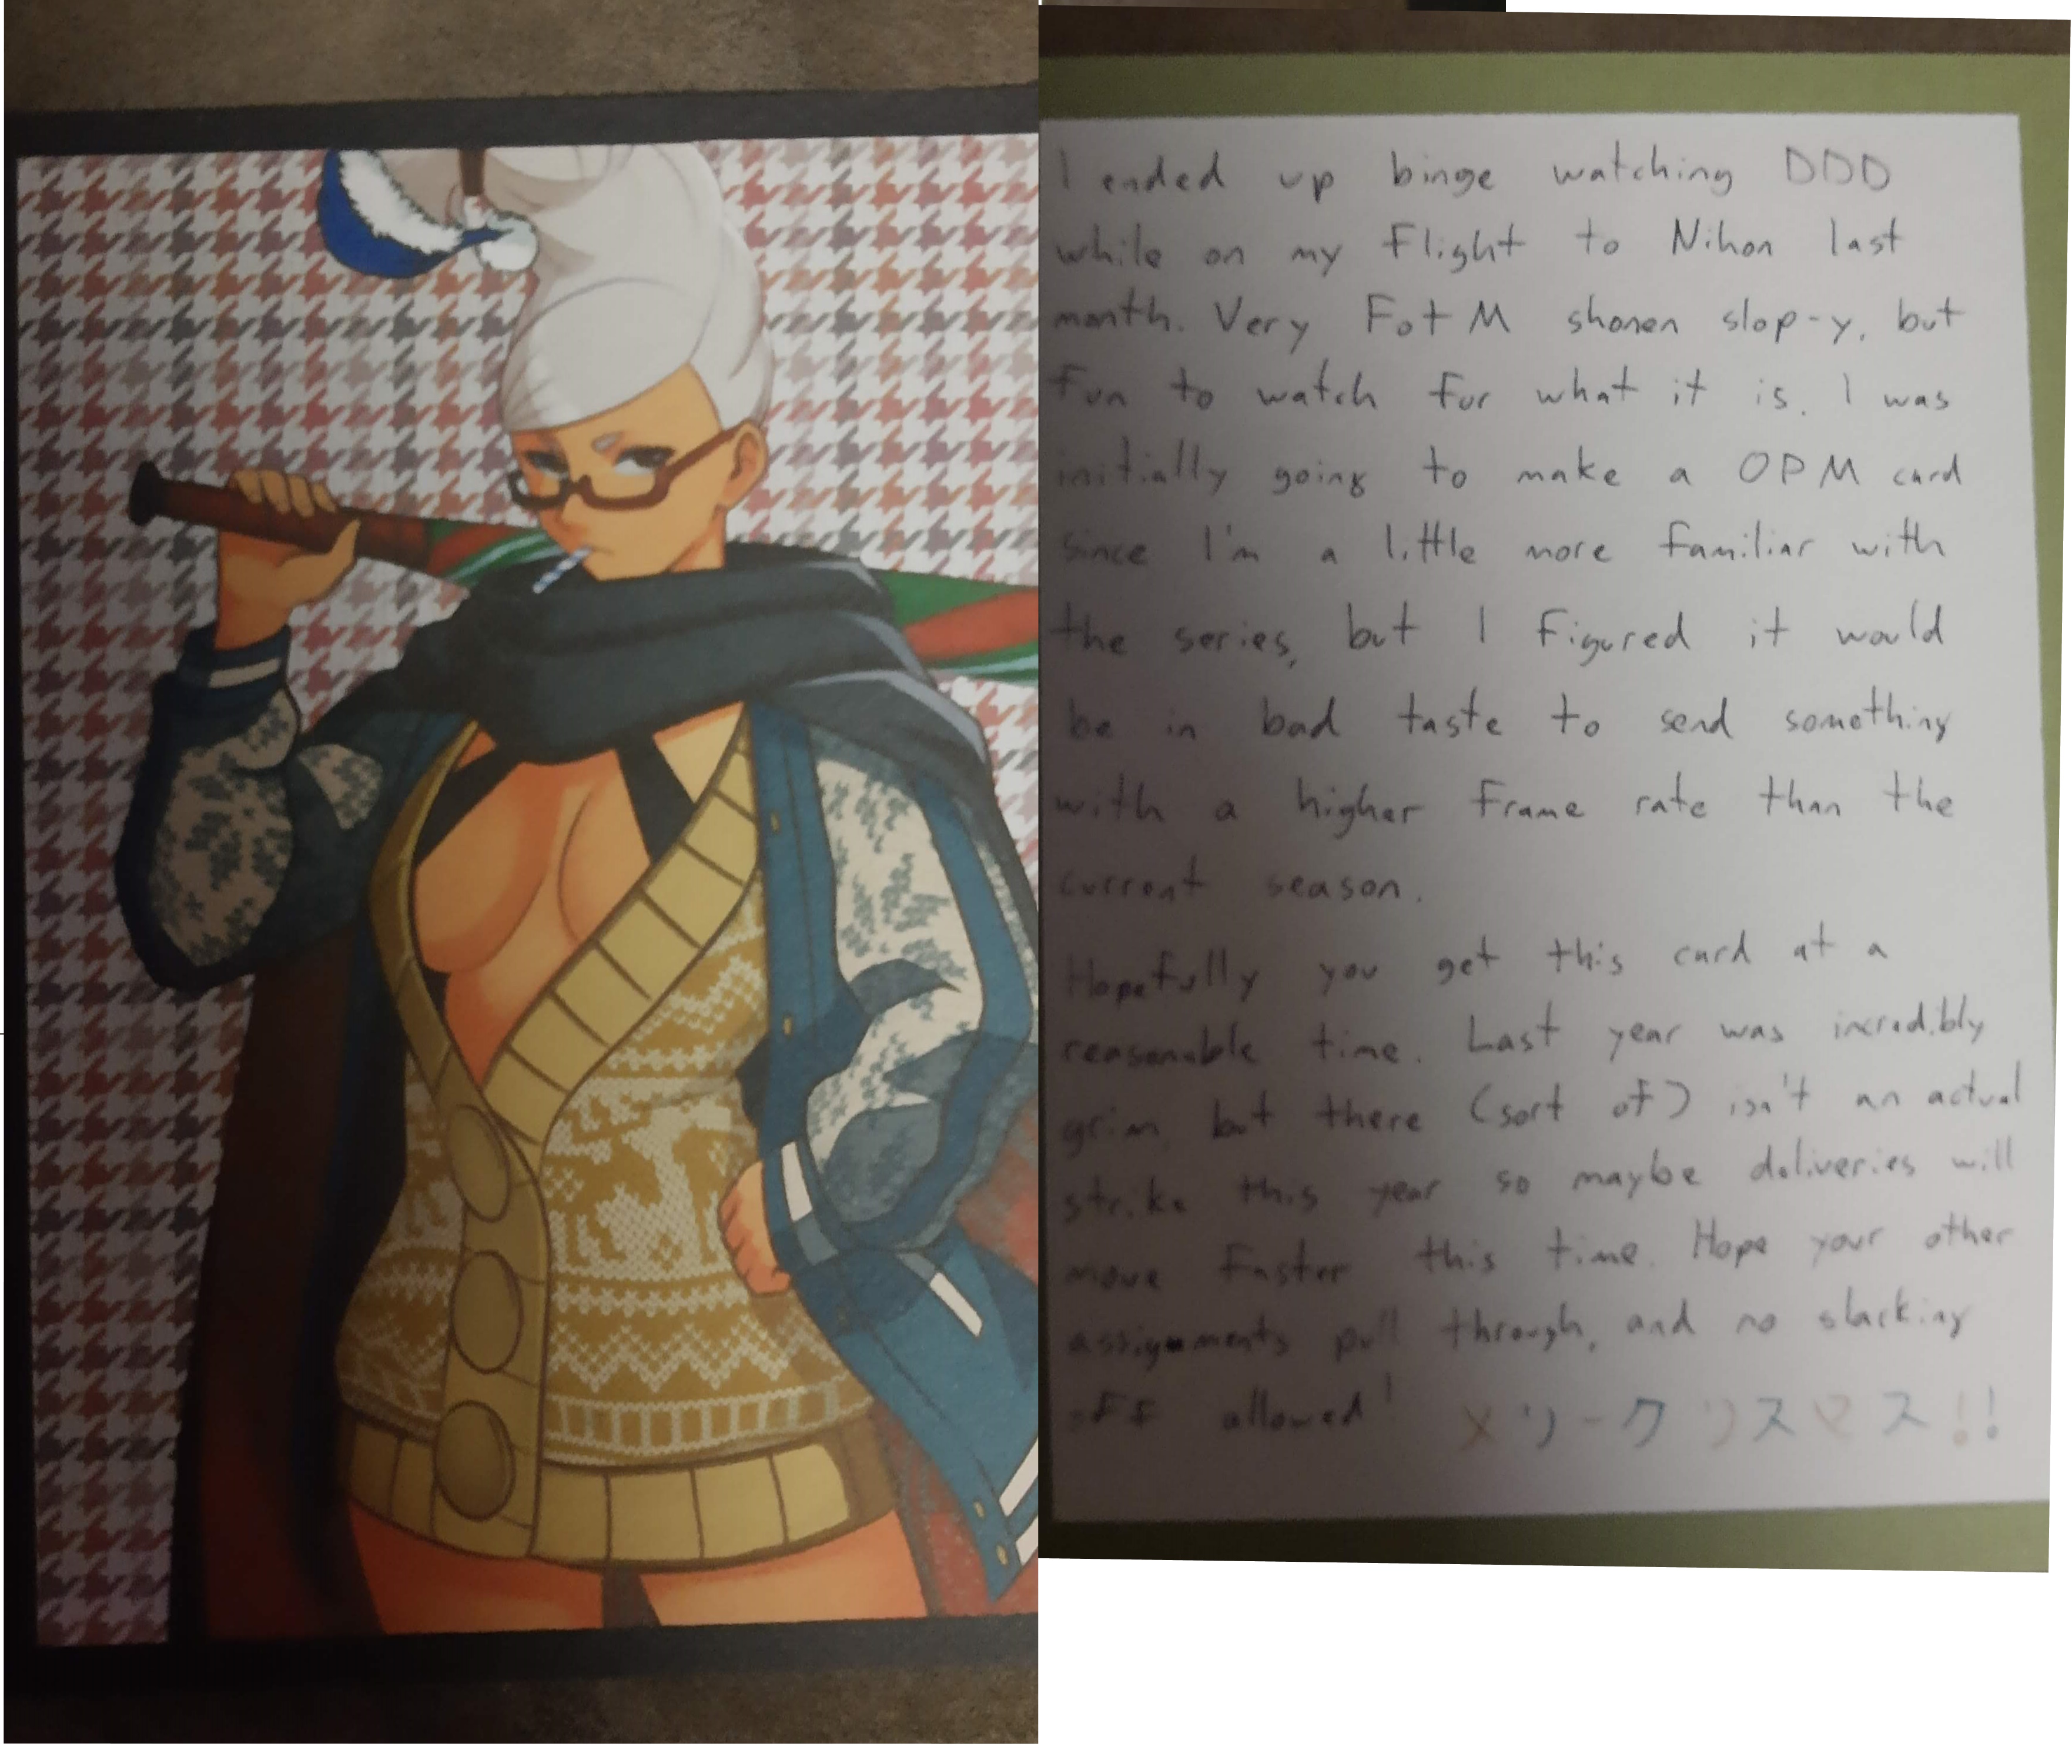 I ended up binge watching DDD
while on my flight to Nihon last
month. Very FotM shonen slop-y, but
fun to watch for what it is. I was
initially going to make a OPM card
since I'm a little more familiar with
the series, but I figured it would
be in bad taste to send something
with a higher frame rate than the
current season.
Hopefully you get this card at a
reasonable time. Last year was incredibly
grim, but there (sort of) isn't an actual
strike this year so maybe deliveries will
move faster this time. Hope your other
assignments pull through, and no slacking
off allowed! メリークリスマス!!